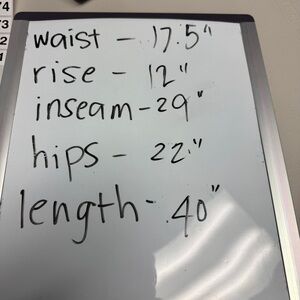 waist - 17.5"
rise - 12"
inseam - 29"
hips - 22"
length - 40"